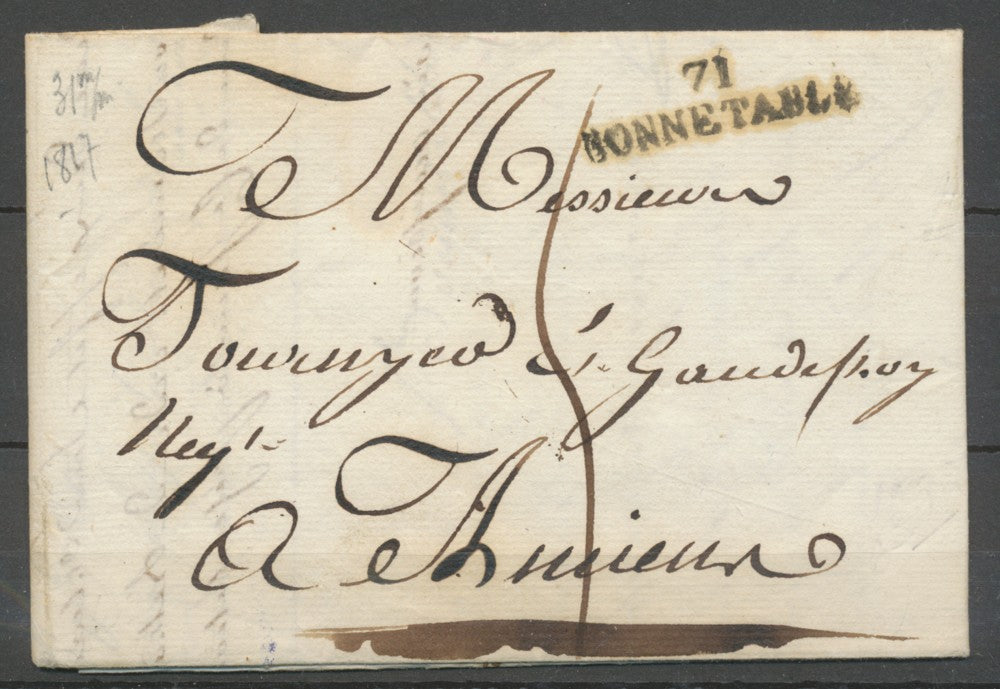 31 m/m
1827
71
BONNETABLE
Messieurs
Gaudefroy
Negts
A Amiens